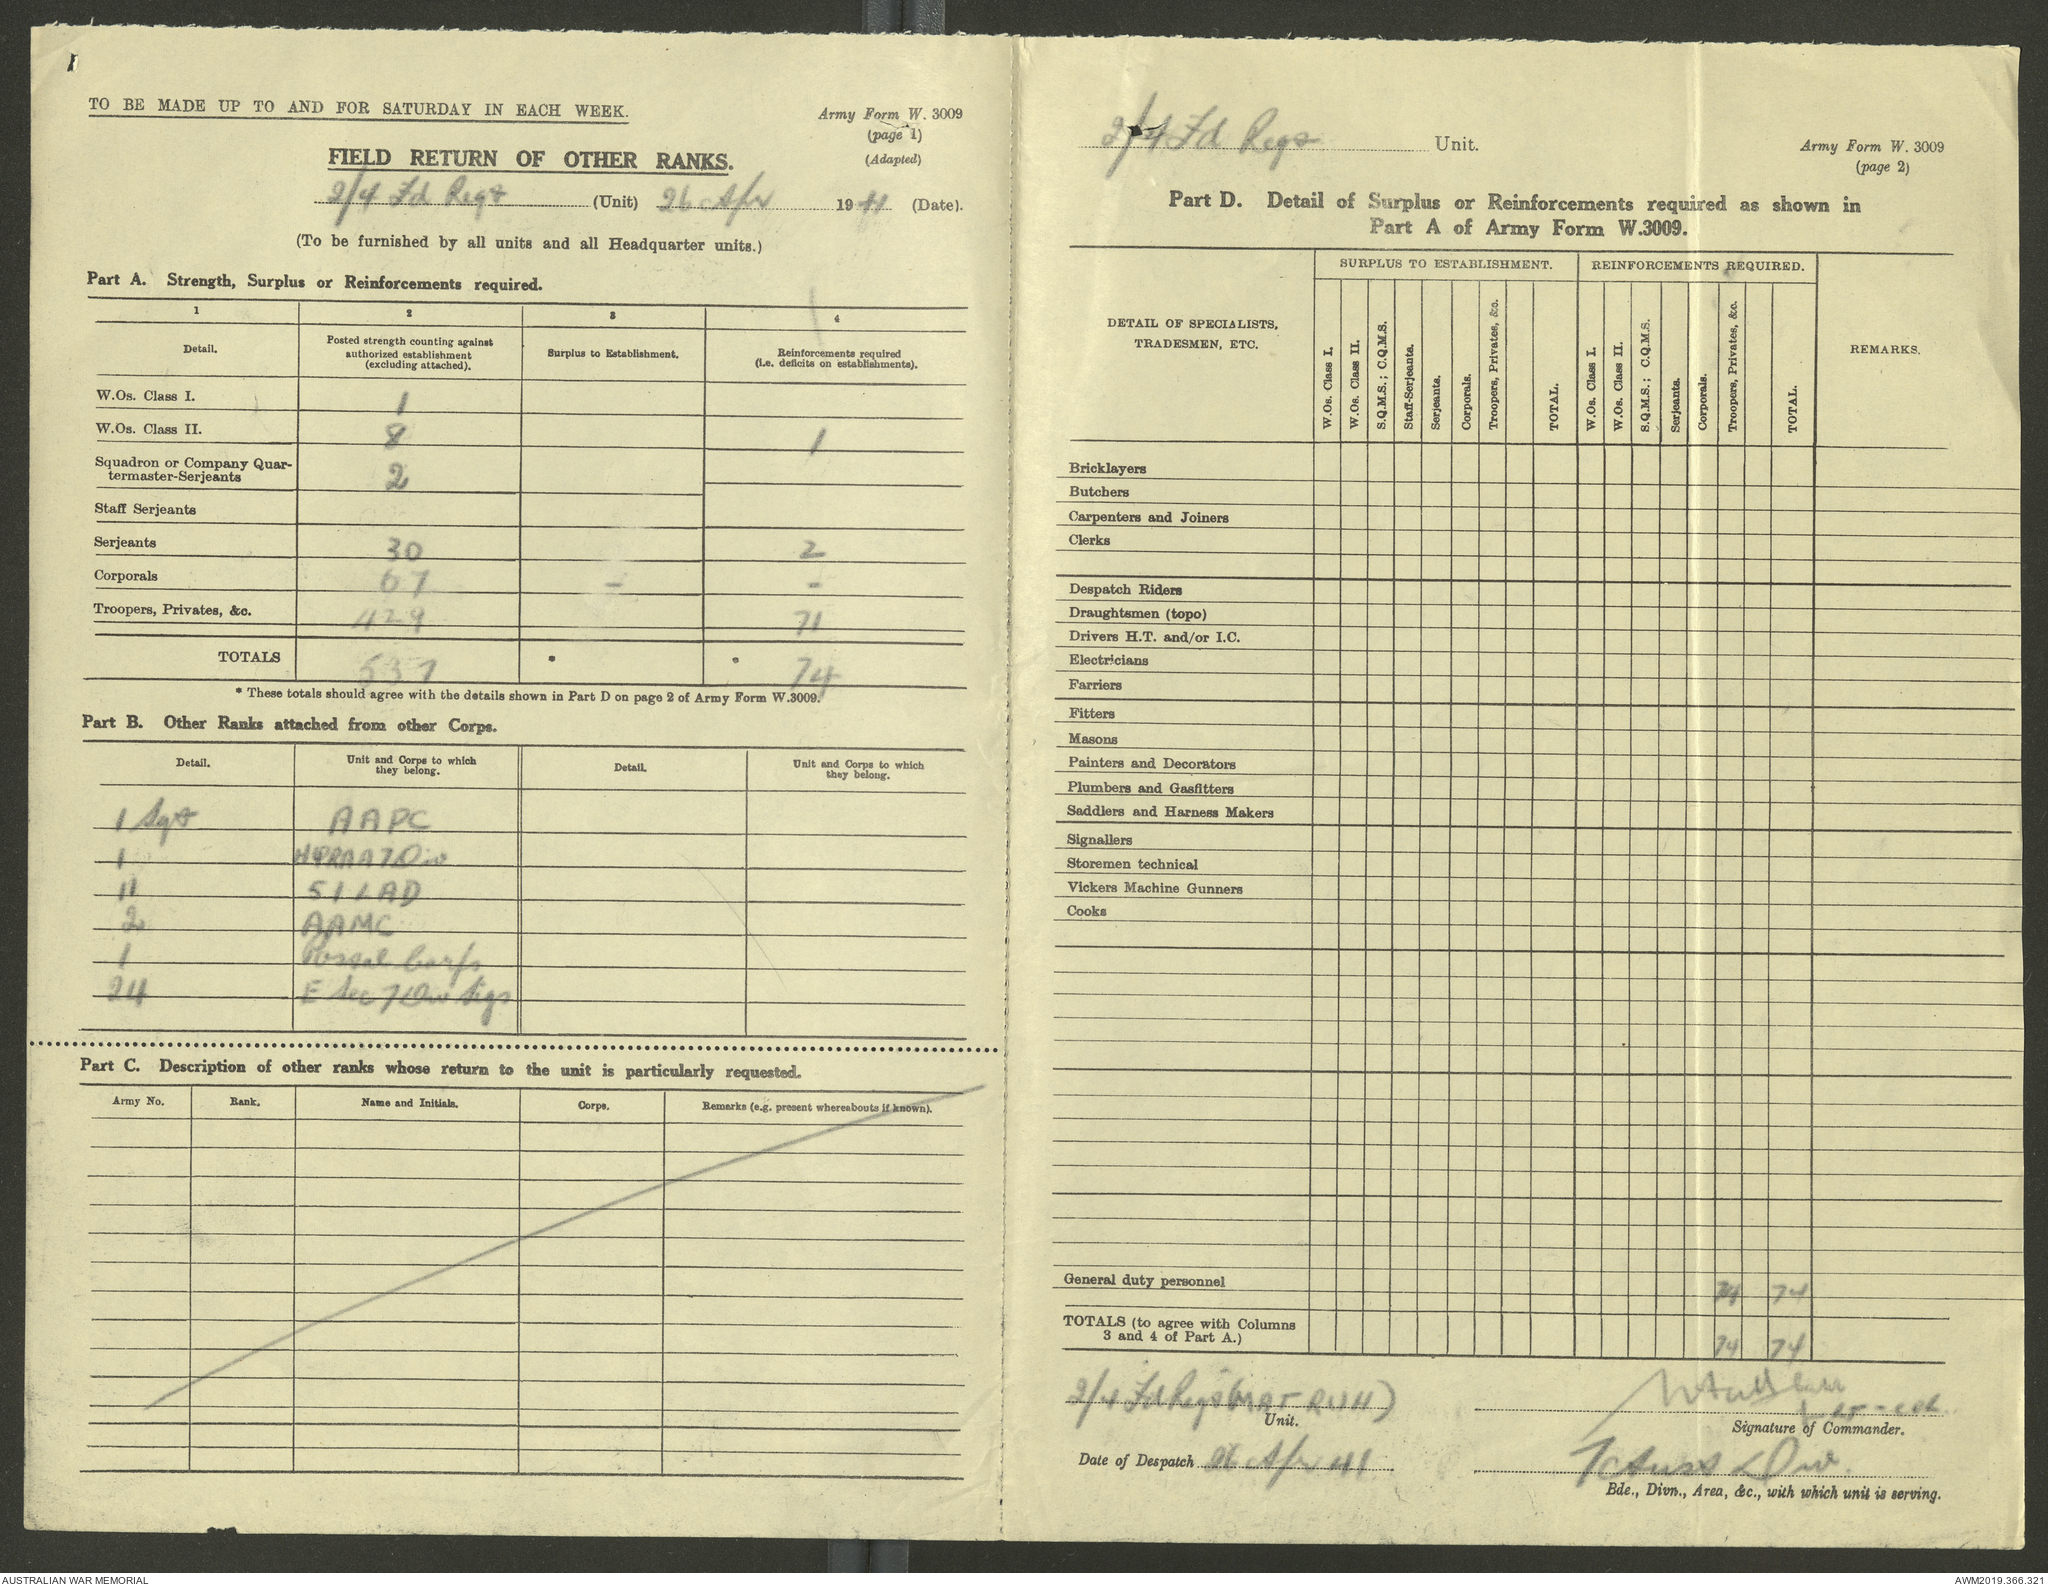 TO BE MADE UP TO AND FOR SATURDAY IN EACH WEEK.
Army Form W. 3009
(page 1)
(Adapted)
FIELD RETURN OF OTHER RANKS.
2/4 Fd Regt (Unit) 26 Apr 1941 (Date).
(To be furnished by all units and all Headquarter units.)
Part A. Strength, Surplus or Reinforcements required.
1 2 3 4
Detail. Posted strength counting against authorized establishment (excluding attached). Surplus to Establishment. Reinforcements required (i.e. deficits on establishments).
W.Os. Class I. 1
W.Os. Class II. 8 1
Squadron or Company Quar-
termaster-Serjeants 2
Staff Serjeants
Serjeants 30 2
Corporals 67 - -
Troopers, Privates, &c. 429 71
TOTALS 537 * * 74
* These totals should agree with the details shown in Part D on page 2 of Army Form W.3009.
Part B. Other Ranks attached from other Corps.
Detail. Unit and Corps to which they belong. Detail. Unit and Corps to which they belong.
1 Sgt AAPC
1 HQRAA 7 Div
11 51 LAD
2 AAMC
1 Postal Corps
24 E Sec 7 Div Sigs
Part C. Description of other ranks whose return to the unit is particularly requested.
Army No. Rank. Name and Initials. Corps. Remarks (e.g. present whereabouts if known).
2/4 Fd Regt Unit.
Army Form W. 3009
(page 2)
Part D. Detail of Surplus or Reinforcements required as shown in
Part A of Army Form W.3009.
DETAIL OF SPECIALISTS,
TRADESMEN, ETC.
SURPLUS TO ESTABLISHMENT. REINFORCEMENTS REQUIRED.
W.Os. Class I.
W.Os. Class II.
S.Q.M.S.; C.Q.M.S.
Staff-Serjeants.
Serjeants.
Corporals.
Troopers, Privates, &c.
TOTAL.
W.Os. Class I.
W.Os. Class II.
S.Q.M.S.; C.Q.M.S.
Serjeants.
Corporals.
Troopers, Privates, &c.
TOTAL.
REMARKS.
Bricklayers
Butchers
Carpenters and Joiners
Clerks
Despatch Riders
Draughtsmen (topo)
Drivers H.T. and/or I.C.
Electricians
Farriers
Fitters
Masons
Painters and Decorators
Plumbers and Gasfitters
Saddlers and Harness Makers
Signallers
Storemen technical
Vickers Machine Gunners
Cooks
General duty personnel 74 74
TOTALS (to agree with Columns
3 and 4 of Part A.) 74 74
2/4 Fd Regt
Unit.
Lt-Col
Signature of Commander.
Date of Despatch 26 Apr 41
7 Aust Div.
Bde., Divn., Area, &c., with which unit is serving.
AUSTRALIAN WAR MEMORIAL
AWM2019.366.321